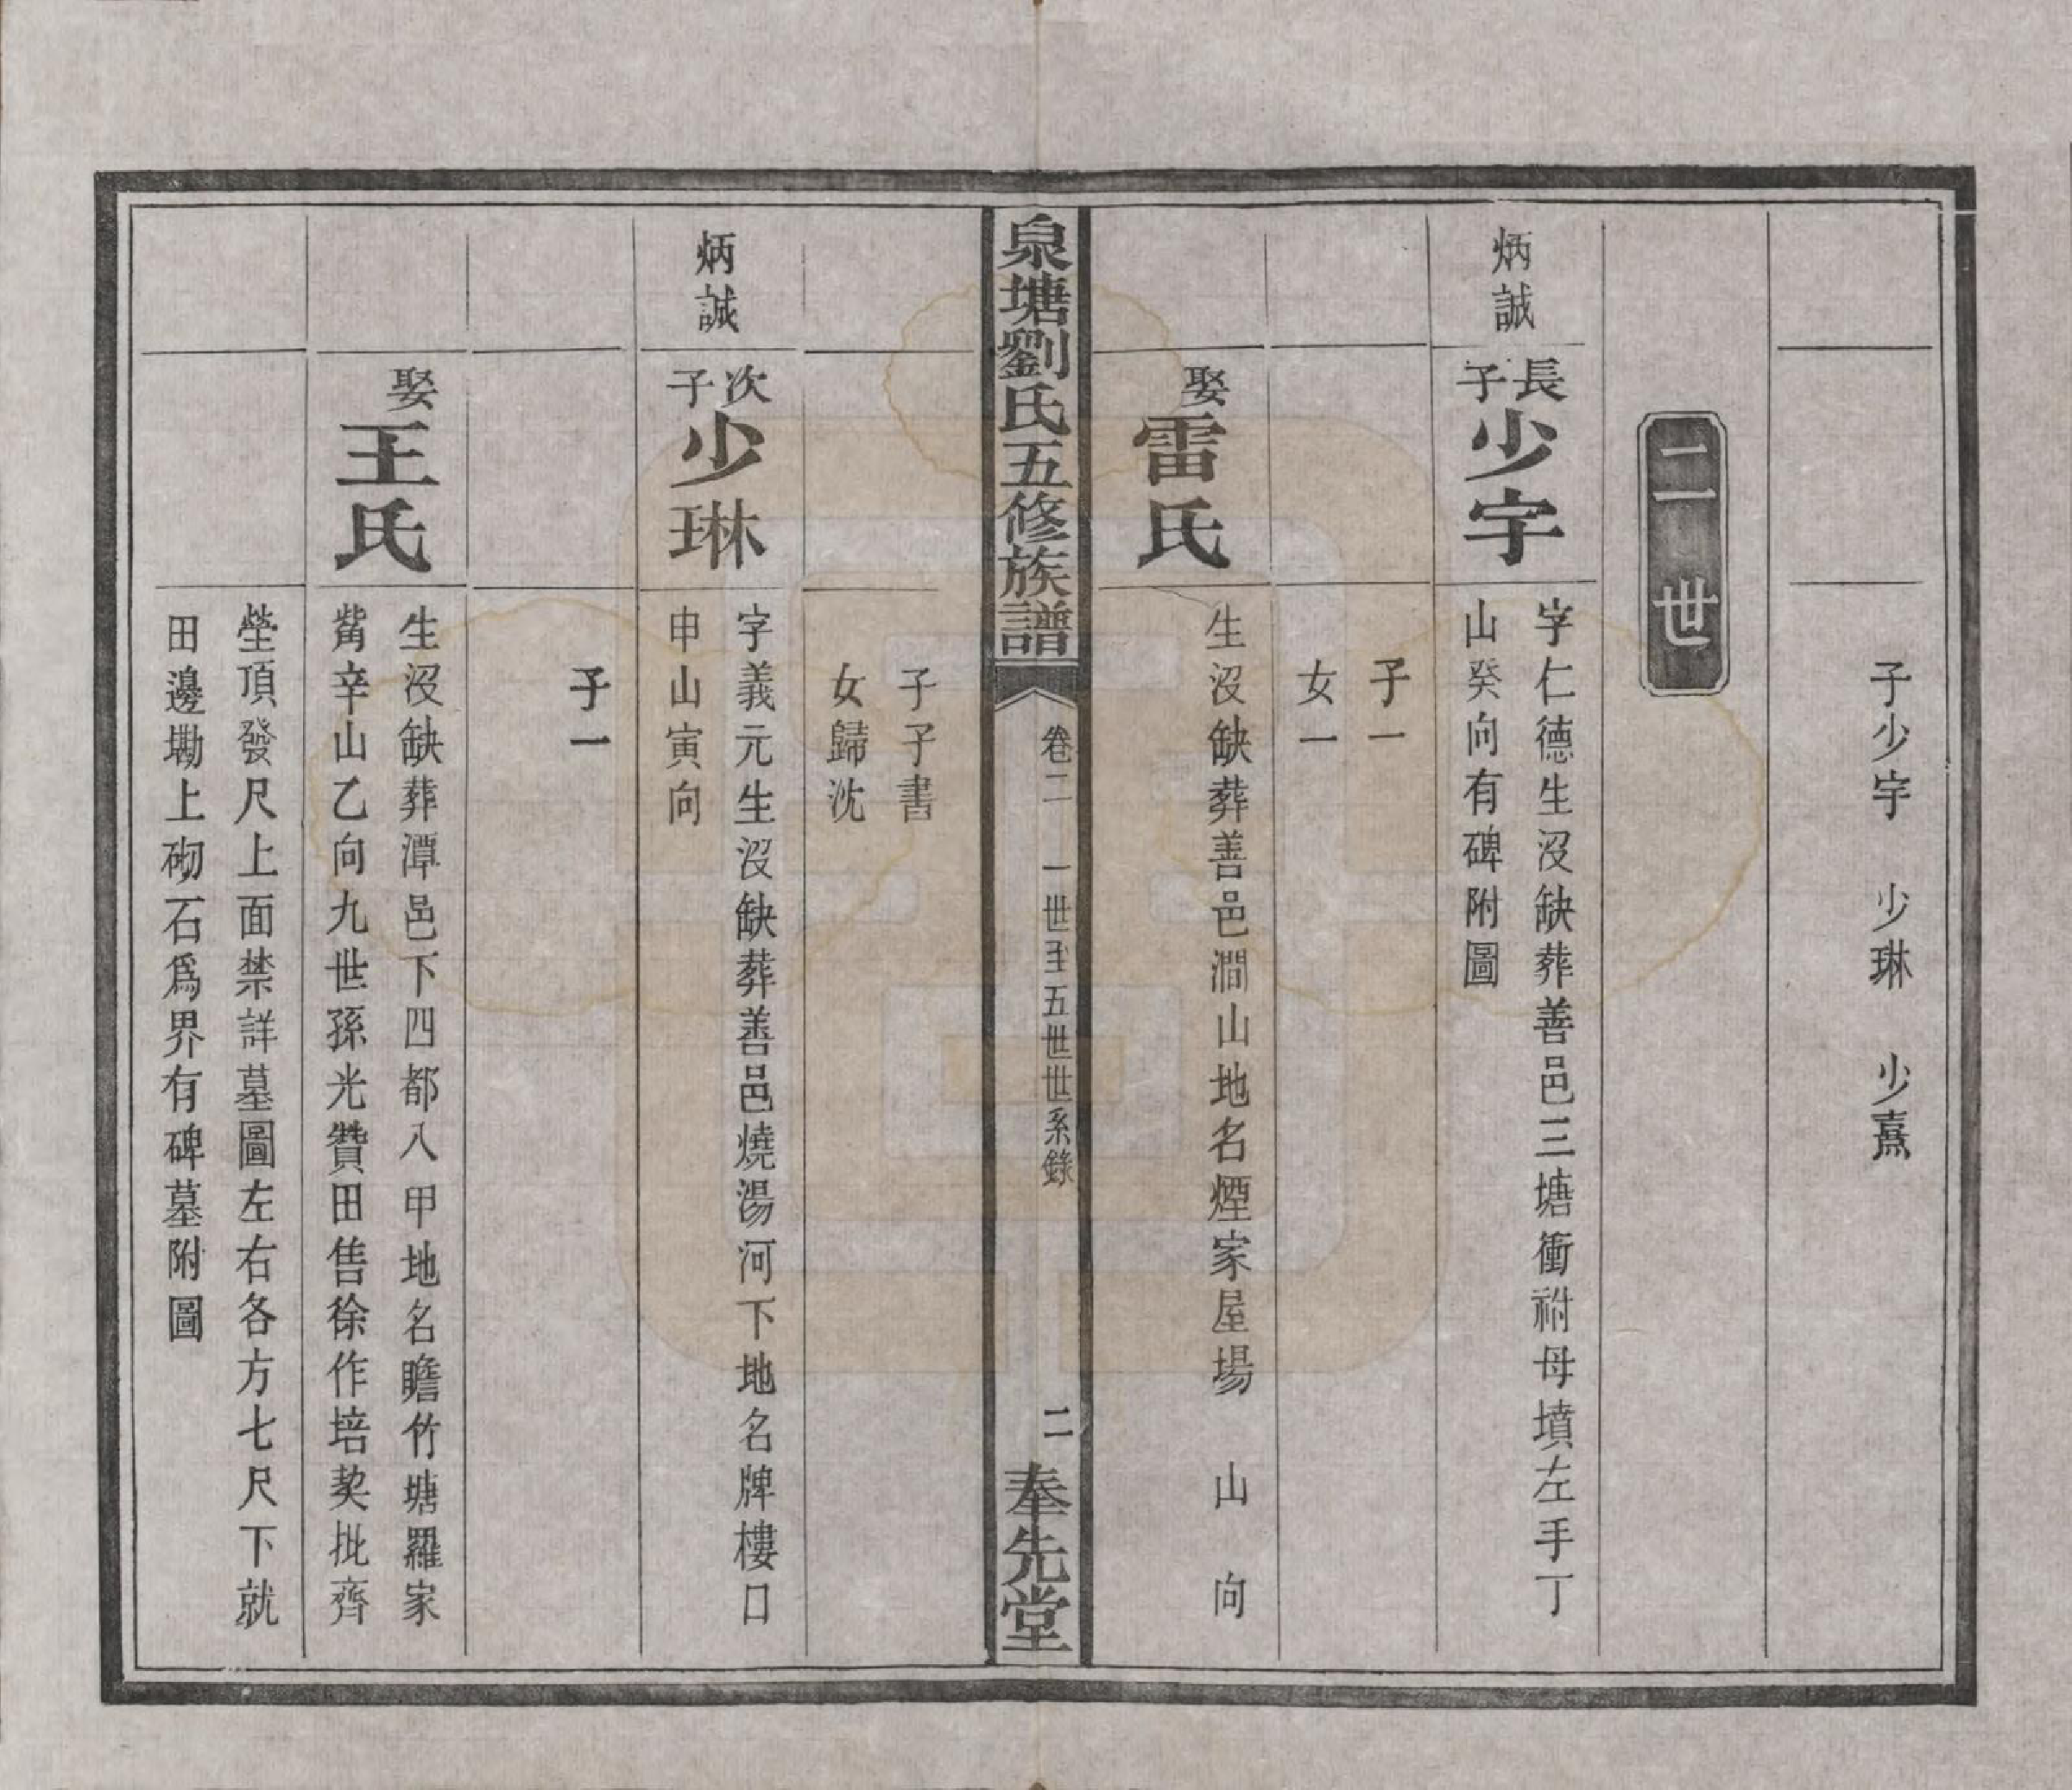 子少宇　少琳　少熹
二世
炳誠
長子少宇
字仁德生沒缺葬善邑三塘衝祔母墳左手丁
山癸向有碑附圖
子一
女一
娶雷氏
生沒缺葬善邑澗山地名煙家屋場　山　向
泉塘劉氏五修族譜
卷二　一世至五世世系錄
二
奉先堂
子子書
女歸沈
炳誠
次子少琳
字義元生沒缺葬善邑燒湯河下地名牌樓口
申山寅向
子一
娶王氏
生沒缺葬潭邑下四都八甲地名瞻竹塘羅家
觜辛山乙向九世孫光贊田售徐作培契批齊
塋頂發尺上面禁詳墓圖左右各方七尺下就
田邊墈上砌石爲界有碑墓附圖